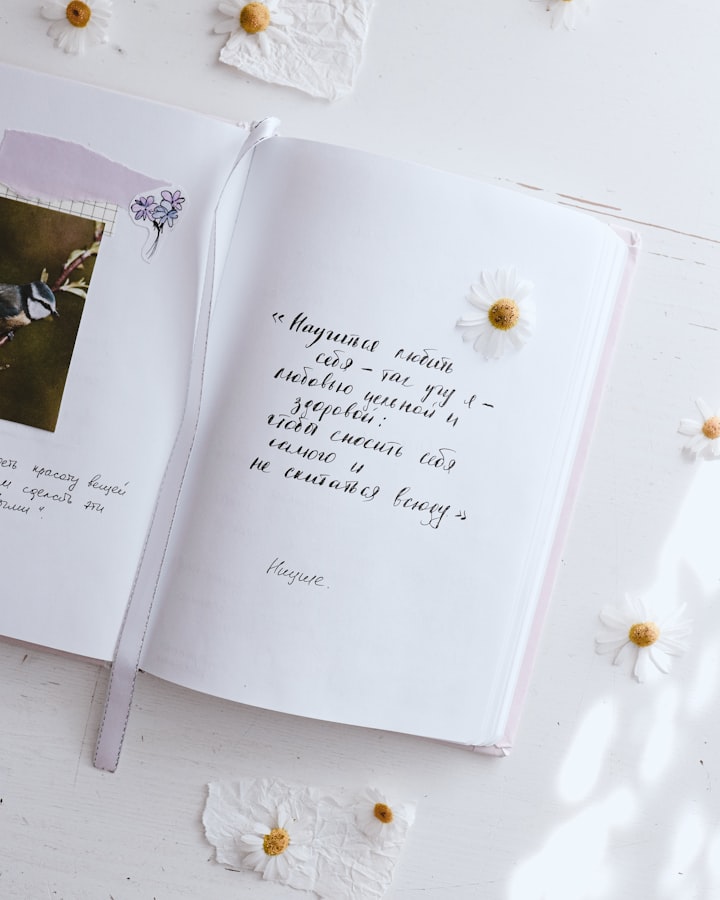 красоту вещей
сделать эти
"Научиться любить
себя – так учу я –
любовью цельной и
здоровой:
чтобы сносить себя
самого и
не скитаться всюду"
Ницше.